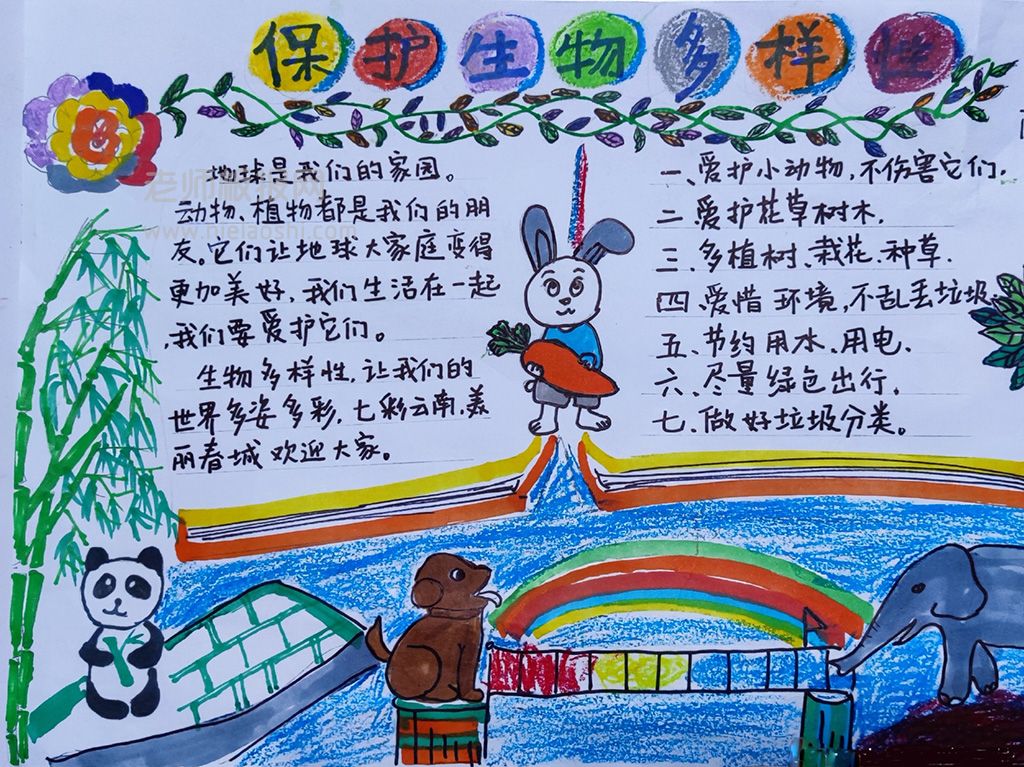 保护生物多样性
地球是我们的家园。
动物、植物都是我们的朋
友。它们让地球大家庭变得
更加美好,我们生活在一起
,我们要爱护它们。
生物多样性,让我们的
世界多姿多彩,七彩云南,美
丽春城欢迎大家。
一、爱护小动物,不伤害它们.
二.爱护花草树木.
三、多植树、栽花、种草.
四、爱惜环境,不乱丢垃圾
五、节约用水、用电.
六、尽量绿色出行,
七、做好垃圾分类。
老师板报网